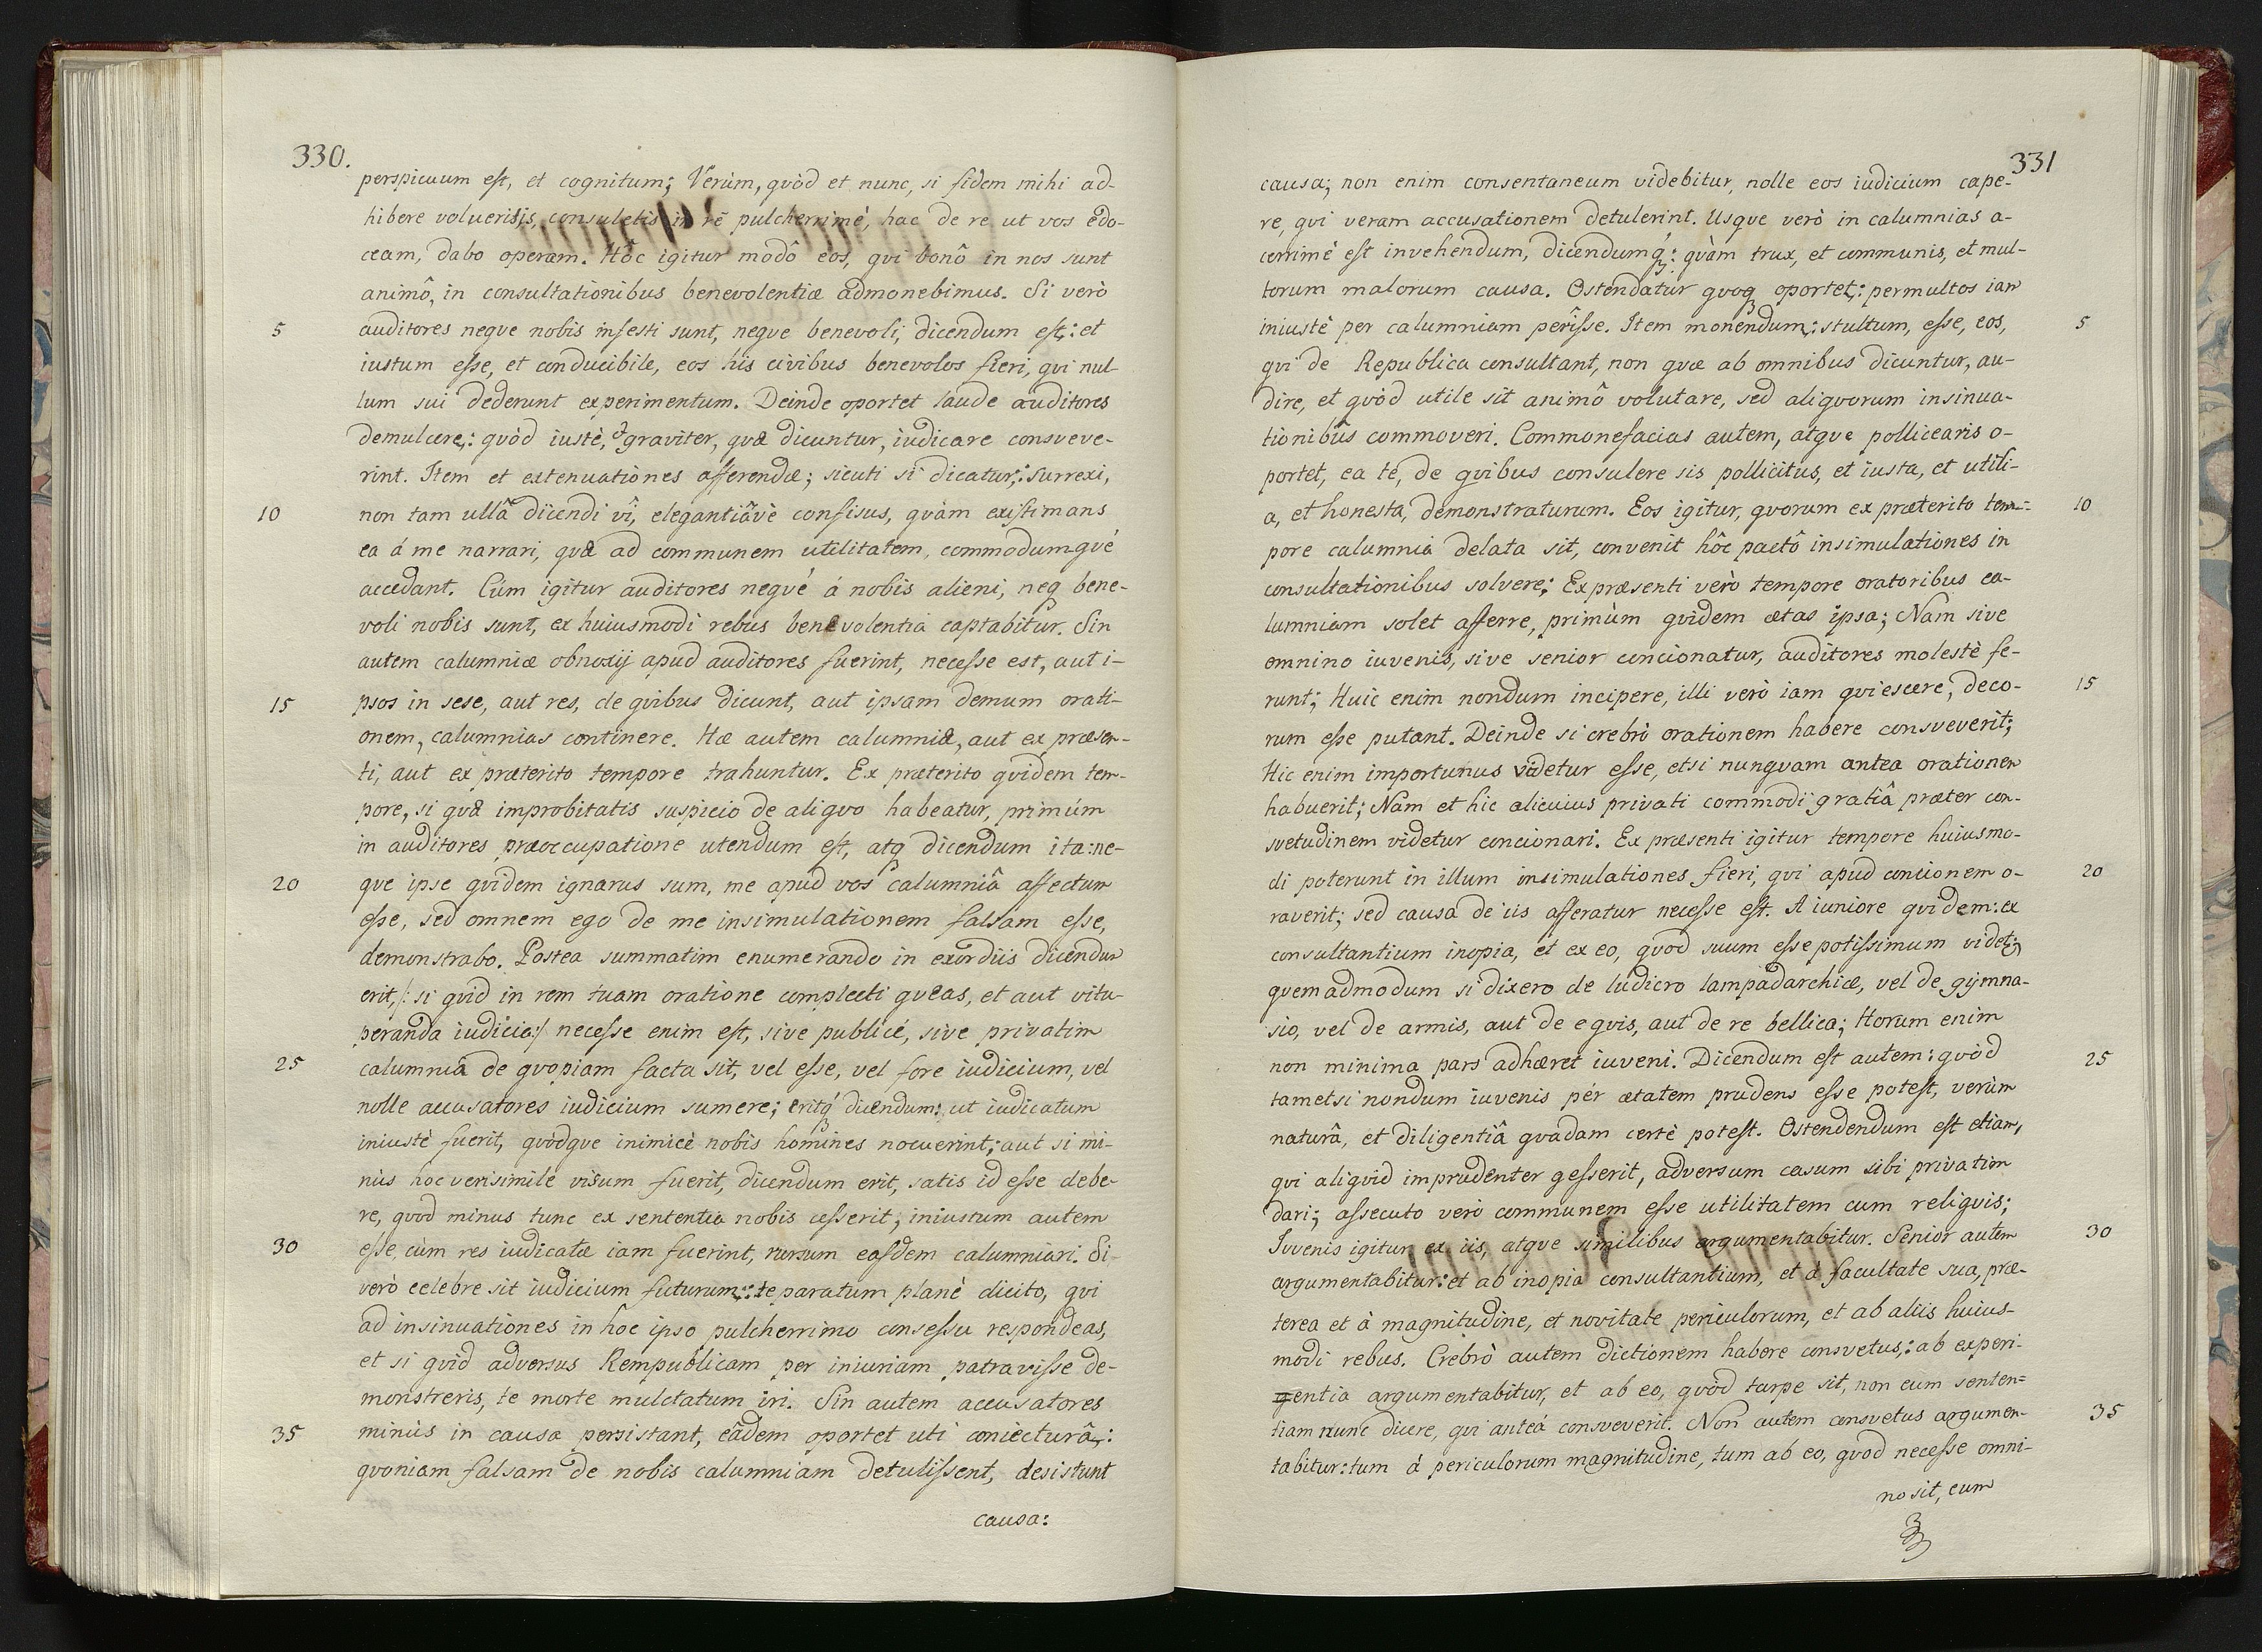 330.
perspicuum est, et cognitum; Verùm, qvòd et nunc, si fidem mihi ad-
hibere volueritis, consuletis in rē pulcherrimè, hac de re ut vos edo-
ceam, dabo operam. Hôc igitur modô eos, qvi bonô in nos sunt
animô, in consultationibus benevolentiæ admonebimus. Si verò
5 auditores neqve nobis infesti sunt, neqve benevoli, dicendum est: et
iustum esse, et conducibile, eos his civibus benevolos fieri, qvi nul-
lum sui dederunt experimentum. Deinde oportet laude auditores
demulcere: qvòd iustè, & graviter, qvæ dicuntur, iudicare consveve-
rint. Item et extenuationes afferendæ; sicuti si dicatur: surrexi,
10 non tam ullâ dicendi vî, elegantiâvè confisus, qvàm existimans
ea á me narrari, qvæ ad communem utilitatem, commodumqvé
accedant. Cúm igitur auditores neqvè á nobis alieni, neq bene-
voli nobis sunt, ex huiusmodi rebus benevolentia captabitur. Sin
autem calumniæ obnoxij apud auditores fuerint, necesse est, aut i-
15 psos in sese, aut res, de qvibus dicunt, aut ipsam demum orati-
onem, calumnias continere. Hæ autem calumniæ, aut ex præsen-
ti, aut ex præterito tempore trahuntur. Ex præterito qvidem tem-
pore, si qvæ improbitatis suspicio de aliqvo habeatur, primúm
in auditores præoccupatione utendum est, atq dicendum ita: ne-
20 qve ipse qvidem ignarus sum, me apud vos calumniâ affectum
esse, sed omnem ego de me insimulationem falsam esse,
demonstrabo. Postea summatim enumerando in exordiis dicendum
erit, /: si qvid in rem tuam oratione complecti qveas, et aut vitu-
peranda iudicia :/ necesse enim est, sive publicé, sive privatim
25 calumnia de qvopiam facta sit, vel esse, vel fore iudicium, vel
nolle accusatores iudicium sumere; eritq́ dicendum: ut iudicatum
iniustè fuerit, qvòdqve inimicè nobis homines nocuerint; aut si mi-
nùs hoc verisimile visum fuerit, dicendum erit, satis id esse debe-
re, qvod minus tunc ex sententia nobis cesserit; iniustum autem
30 esse, cùm res iudicatæ iam fuerint, rursum easdem calumniari. Si
verò celebre sit iudicium futurum: te paratum planè dicito, qvi
ad insinuationes in hoc ipso pulcherrimo consessu respondeas,
et si qvid adversus Rempublicam per iniuriam patravisse de-
monstreris, te morte mulctatum iri. Sin autem accusatores
35 minùs in causa persistant, eâdem oportet uti coniecturâ:
qvoniam falsam de nobis calumniam detulissent, desistunt
causa:
331
causa; non enim consentaneum videbitur, nolle eos iudicium cape-
re, qvi veram accusationem detulerint. Usqve verò in calumnias a-
cerrimè est invehendum, dicendumq́: qvàm trux, et communis, et mul-
torum malorum causa. Ostendatur qvoq oportet: permultos iam
iniustè per calumniam perîsse. Item monendum: stultum, esse, eos, 5
qvi de Republica consultant, non qvæ ab omnibus dicuntur, au-
dire, et qvòd utile sit animô volutare, sed aliqvorum insinua-
tionibus commoveri. Commonefacias autem, atqve pollicearis o-
portet, ea te, de qvibus consulere sis pollicitus, et iusta, et utili-
a, et honesta, demonstraturum. Eos igitur, qvorum ex præterito tem- 10
pore calumnia delata sit, convenit hôc pactô insimulationes in
consultationibus solvere; Ex præsenti verò tempore oratoribus ca-
lumniam solet afferre, primùm qvidem ætas ipsa; Nam sive
omnino iuvenis, sive senior concionatur, auditores molestè fe-
runt; Huic enim nondum incipere, illi verò iam qviescere, deco- 15
rum esse putant. Deinde si crebrò orationem habere consveverit;
Hic enim importunus videtur esse, etsi nunqvam antea orationem
habuerit; Nam et hic alicuius privati commodi gratiâ præter con-
svetudinem videtur concionari. Ex præsenti igitur tempore huiusmo-
di poterunt in illum insimulationes fieri, qvi apud concionem o- 20
raverit; sed causa de iis afferatur necesse est. A iuniore qvidem: ex
consultantium inopia, et ex eo, qvod suum esse potissimum videt;
qvemadmodum si dixero de ludicro lampadarchiæ, vel de gymna-
sio, vel de armis, aut de eqvis, aut de re bellica; Horum enim
non minima pars adhæret iuveni. Dicendum est autem: qvòd 25
tametsi nondum iuvenis pér ætatem prudens esse potest, verùm
naturâ, et diligentiâ qvadam certè potest. Ostendendum est etiam,
qvi aliqvid imprudenter gesserit, adversum casum sibi privatim
dari; assecuto verò communem esse utilitatem cum reliqvis;
Iuvenis igitur ex iis, atqve similibus argumentabitur. Senior autem 30
argumentabitur: et ab inopia consultantium, et á facultate sua, præ-
terea et à magnitudine, et novitate periculorum, et ab aliis huius-
modi rebus. Crebrò autem dictionem habere consvetus: ab experi-
entia argumentabitur, et ab eo, qvòd turpe sit, non eum senten-
tiam nunc dicere, qvi anteá consveverit. Non autem consvetus argumen- 35
tabitur: tum à periculorum magnitudine, tum ab eo, qvod necesse omni-
no sit, eum